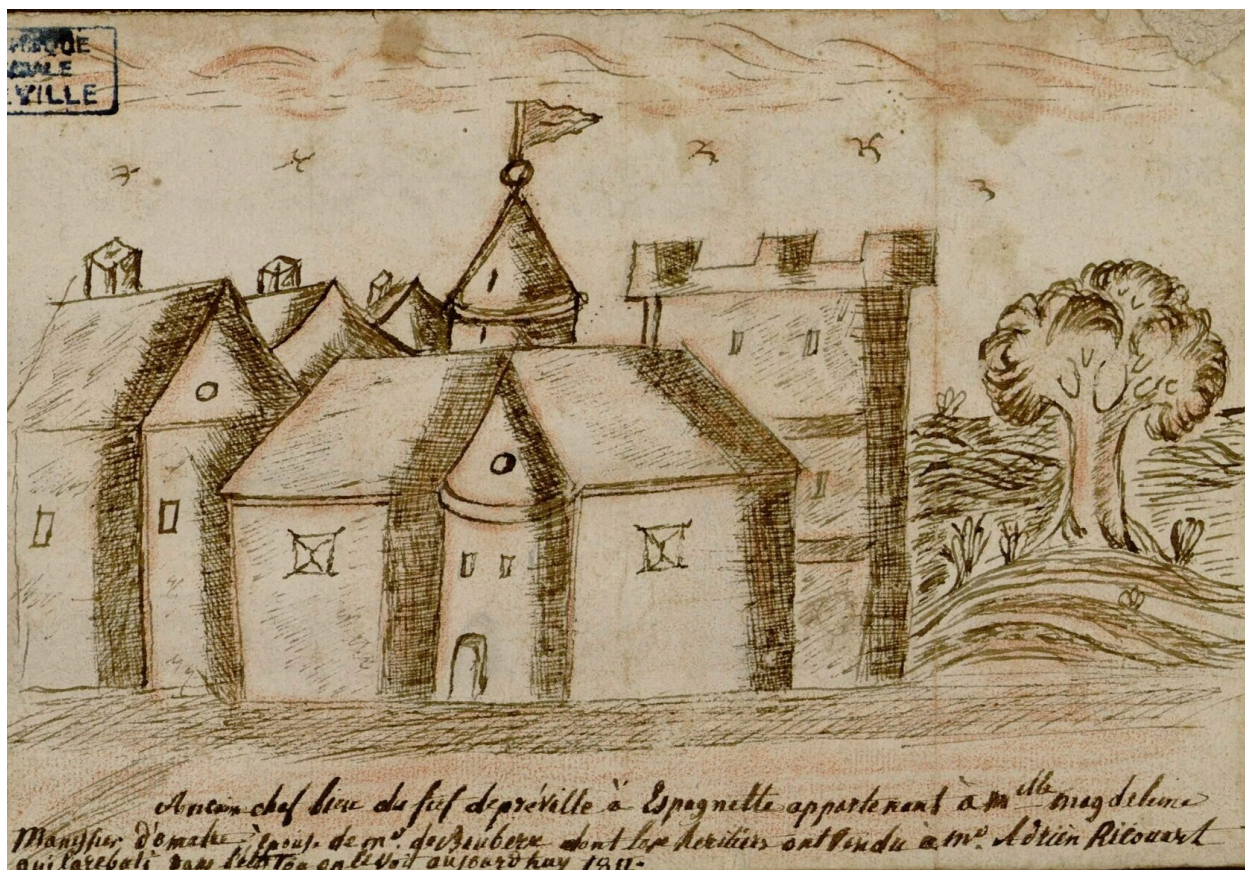 VILLE
Ancien chef lieu du fief depréville à Espagnette appartenant à m elle magdeleine
Manessier d'omatre épouse de mr. de Beubere dont les heritiers ont vendu a mr. Adrien Ricouart
qui la rebati dans l'etat ou on le voit aujourd huy